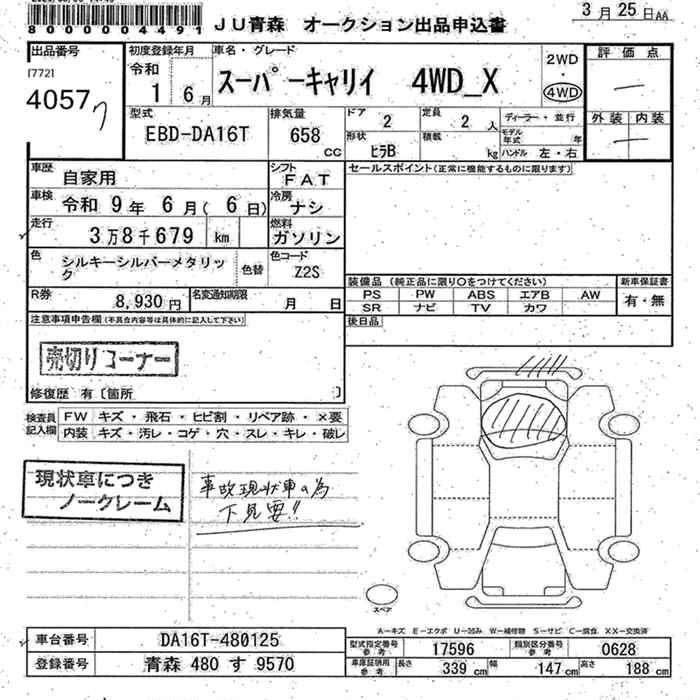 8000004491
JU青森 オークション出品申込書
3月25日AA
出品番号
4057
初度登録年月
令和
1 6月
車名・グレード
スーパーキャリイ 4WD_X
2WD
・
4WD
評価点
外装 内装
型式
EBD-DA16T
排気量
658
cc
ドア
2
定員
2人
形状
ヒラB
積載
kg
ディーラー・並行
モデル年式 年
ハンドル 左・右
車歴
自家用
シフト
FAT
セールスポイント(正常に機能するものに限ります)
車検
令和 9年 6月( 6日)
冷房
ナシ
走行
3万8千679 km
燃料
ガソリン
色
シルキーシルバーメタリック
色替
色コード
Z2S
装備品(純正品に限り○をつけてください)
新車保証書
PS PW ABS エアB AW
SR ナビ TV カワ
有・無
R券
8,930円
名変通知期限
月 日
後日品
注意事項申告欄(不具合内容等は具体的に記入して下さい)
売切りコーナー
修復歴 有〔箇所 〕
検査員記入欄
FW キズ・飛石・ヒビ割・リペア跡・×要
内装 キズ・汚レ・コゲ・穴・スレ・キレ・破レ
現状車につき
ノークレーム
事故現状車の為
下見要!!
スペア
A−キズ E−エクボ U−凹み W−補修跡 S−サビ C−腐食 XX−交換済
車台番号
DA16T-480125
登録番号
青森 480 す 9570
型式指定番号
参考
17596
類別区分番号
参考
0628
車庫証明用
参考
長さ 339 cm 幅 147 cm 高さ 188 cm